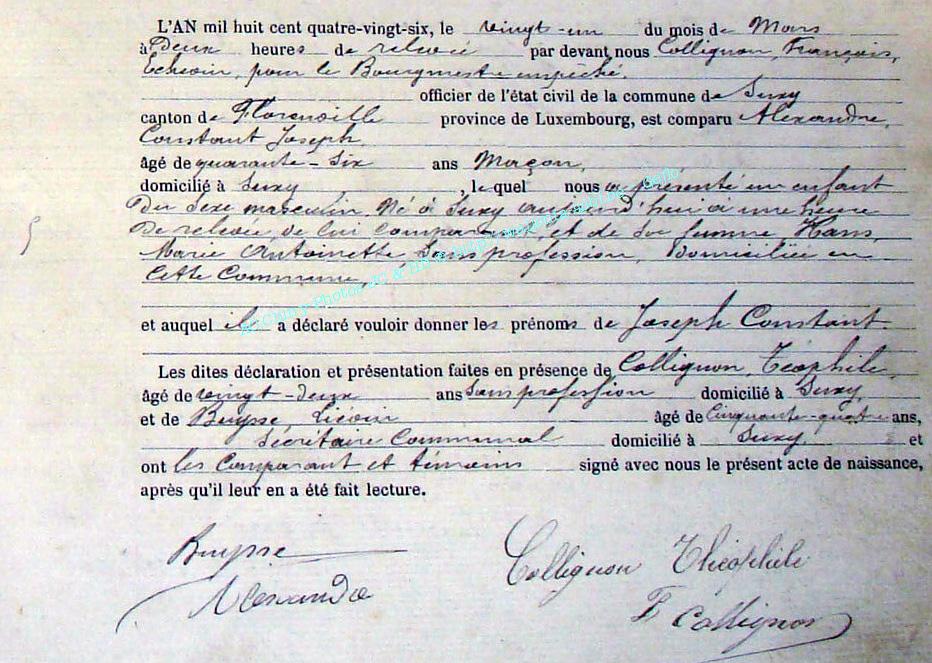 L'AN mil huit cent quatre-vingt-six, le vingt-un du mois de Mars
à Deux heures de relevée par devant nous Collignon, François,
Echevin, pour le Bourgmestre empêché.
officier de l'état civil de la commune de Suxy
canton de Florenville province de Luxembourg, est comparu Alexandre,
Constant Joseph,
âgé de quarante-six ans Maçon,
domicilié à Suxy, lequel nous a présenté un enfant
Du sexe masculin, Né à Suxy aujourd'hui à une heure
De relevée, de lui comparant, et de Sa femme Hans,
Marie Antoinette, Sans profession, Domiciliée en
Cette Commune,
et auquel il a déclaré vouloir donner les prénoms de Joseph Constant.
Les dites déclaration et présentation faites en présence de Collignon, Téophile,
âgé de vingt-deux ans Sans profession domicilié à Suxy,
et de Buysse, Liévin âgé de Cinquante-quatre ans,
Secrétaire Communal domicilié à Suxy, et
ont les Comparant et témoins signé avec nous le présent acte de naissance,
après qu'il leur en a été fait lecture.
Buysse Collignon Théophile
Alexandre
F Collignon